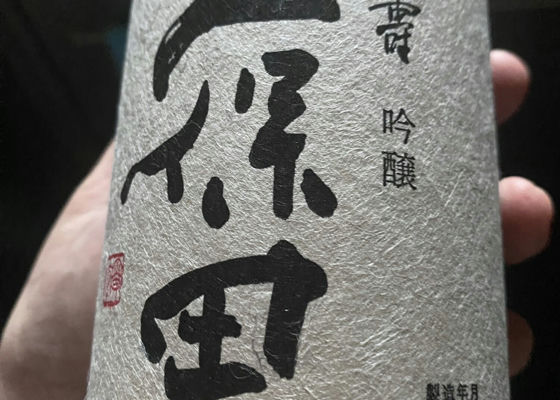 壽
吟醸
保田
製造年月